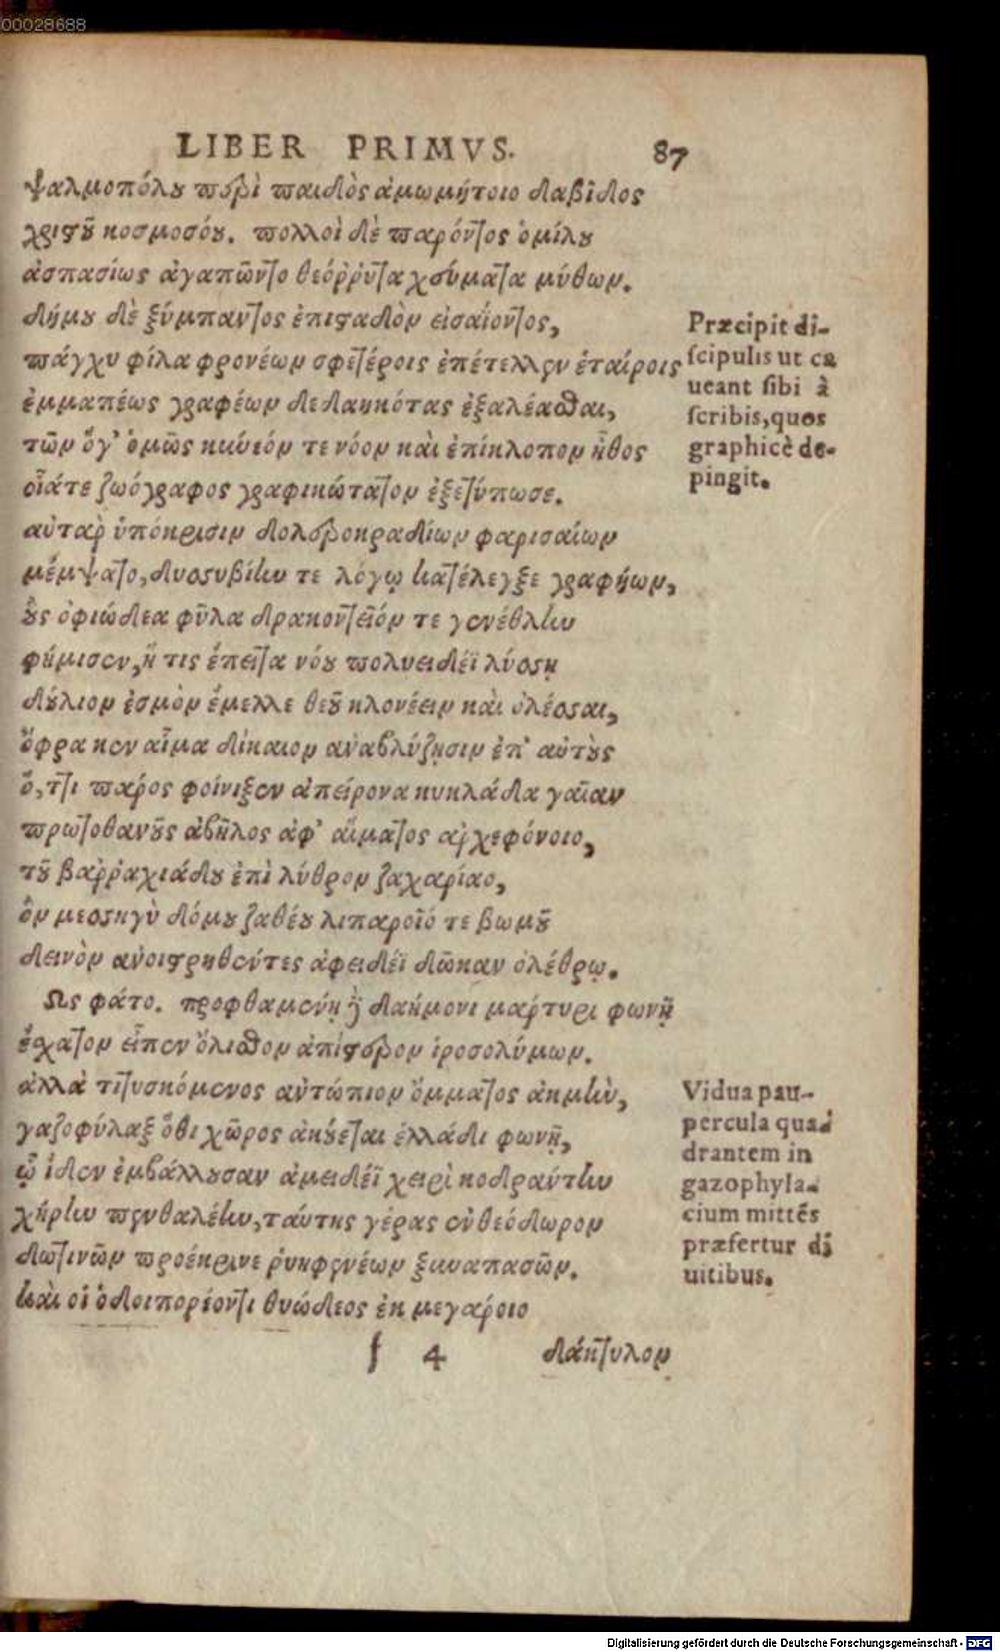 00028688
LIBER PRIMVS. 87
ψαλμοπόλου περὶ παιδὸς ἀμωμήτοιο δαβίδος
χριστοῦ κοσμοσόου. πολλοὶ δὲ παρόντος ὁμίλου
ἀσπασίως ἀγαπῶντο θεόῤῥυτα χεύματα μύθων.
δήμου δὲ ξύμπαντος ἐπισταδὸν εἰσαΐοντος,
πάγχυ φίλα φρονέων σφετέροις ἐπέτελλεν ἑταίροις
ἐμμαπέως γραφέων δεδαηκότας ἐξαλέασθαι,
τῶν ὅγ' ὁμῶς κύνεόν τε νόον καὶ ἐπίκλοπον ἦθος
οἷάτε ζωόγραφος γραφικώτατον ἐξετύπωσε.
αὐτὰρ ὑπόκρισιν δολερόκραδίων φαρισαίων
μέμψατο, δυσσυβίην τε λόγῳ κατέλεγξε γραφήων,
οὓς ὀφιώδεα φῦλα δρακοντεῖόν τε γενέθλην
φήμισεν, ἥ τις ἔπειτα νόου πολυειδέϊ λύσσῃ
δούλιον ἑσμὸν ἔμελλε θεοῦ κλονέειν καὶ ὀλέσσαι,
ὄφρα κεν αἷμα δίκαιον ἀναβλύζησιν ἐπ' αὐτοὺς
ὅ, ττι πάρος φοίνιξεν ἀπείρονα κυκλάδα γαῖαν
πρωτοθανοῦς ἀβῆλος ἀφ' αἵματος ἀρχεφόνοιο,
τοῦ βαῤῥαχιάδου ἐπὶ λύθρον ζαχαρίαο,
ὃν μεσσηγὺ δόμου ζαθέου λιπαροῖό τε βωμοῦ
δεινὸν ἀνοιστρηθέντες ἀφειδέϊ δῶκαν ὀλέθρῳ.
Ως φάτο. προφθαμένῃ δὲ δαήμονι μάρτυρι φωνῇ
ἔσχατον εἶπεν ὄλισθον ἀπίστερον ἱροσολύμων.
ἀλλὰ τιτυσκόμενος αὐτώπιον ὄμματος ἀκμὴν,
γαζοφύλαξ ὅθι χῶρος ἀκούεται ἑλλάδι φωνῇ,
ᾧ ἴδεν ἐμβάλλουσαν ἀμειδέϊ χειρὶ κοδράντην
χήρην πενθαλέην, ταύτης γέρας ἐνθεόδωρον
δωτινῶν προέκρινε ῥυηφενέων ξυναπασῶν.
καὶ οἱ ὁδοιπορέοντι θυώδεος ἐκ μεγάροιο
f 4 δάκτυλον
Præcipit di-
scipulis ut ca
ueant sibi à
scribis, quos
graphicè de-
pingit.
Vidua pau-
percula qua-
drantem in
gazophyla-
cium mittẽs
præfertur di
uitibus.
Digitalisierung gefördert durch die Deutsche Forschungsgemeinschaft - DFG